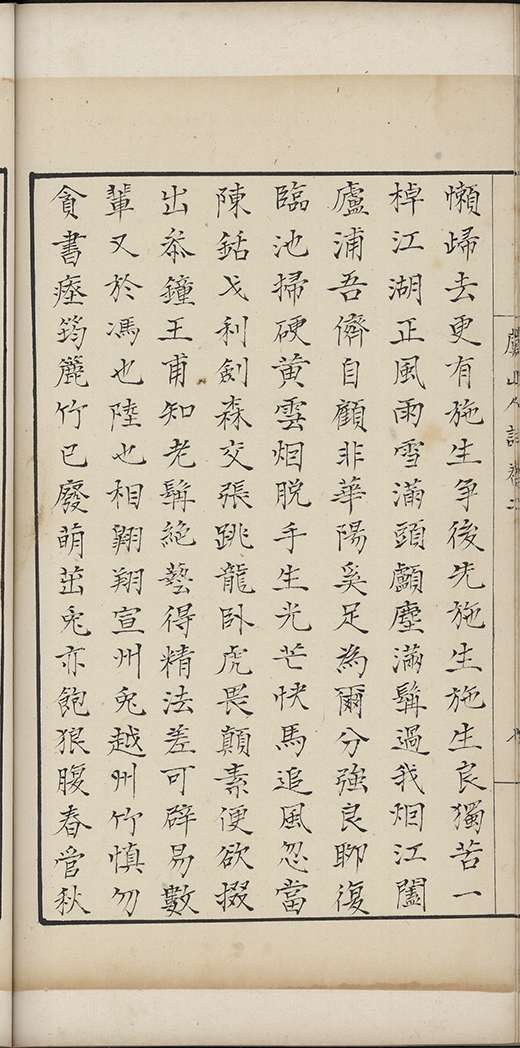 懶歸去更有施生爭後先施生施生良獨苦一
棹江湖正風雨雪滿頭顱塵滿鬅過我烟江闔
廬浦吾儕自顧非華陽奚足為爾分強良聊復
臨池掃硬黃雲烟脱手生光芒快馬追風忽當
陳銛戈利劍森交張跳龍臥虎畏顛素便欲掇
出忝鐘王甫知老鬅絶藝得精法差可辟易數
輩又於馮也陸也相翺翔宣州兔越州竹慎勿
貪書瘞筠簏竹已廢萌茁兔亦飽狼腹春管秋